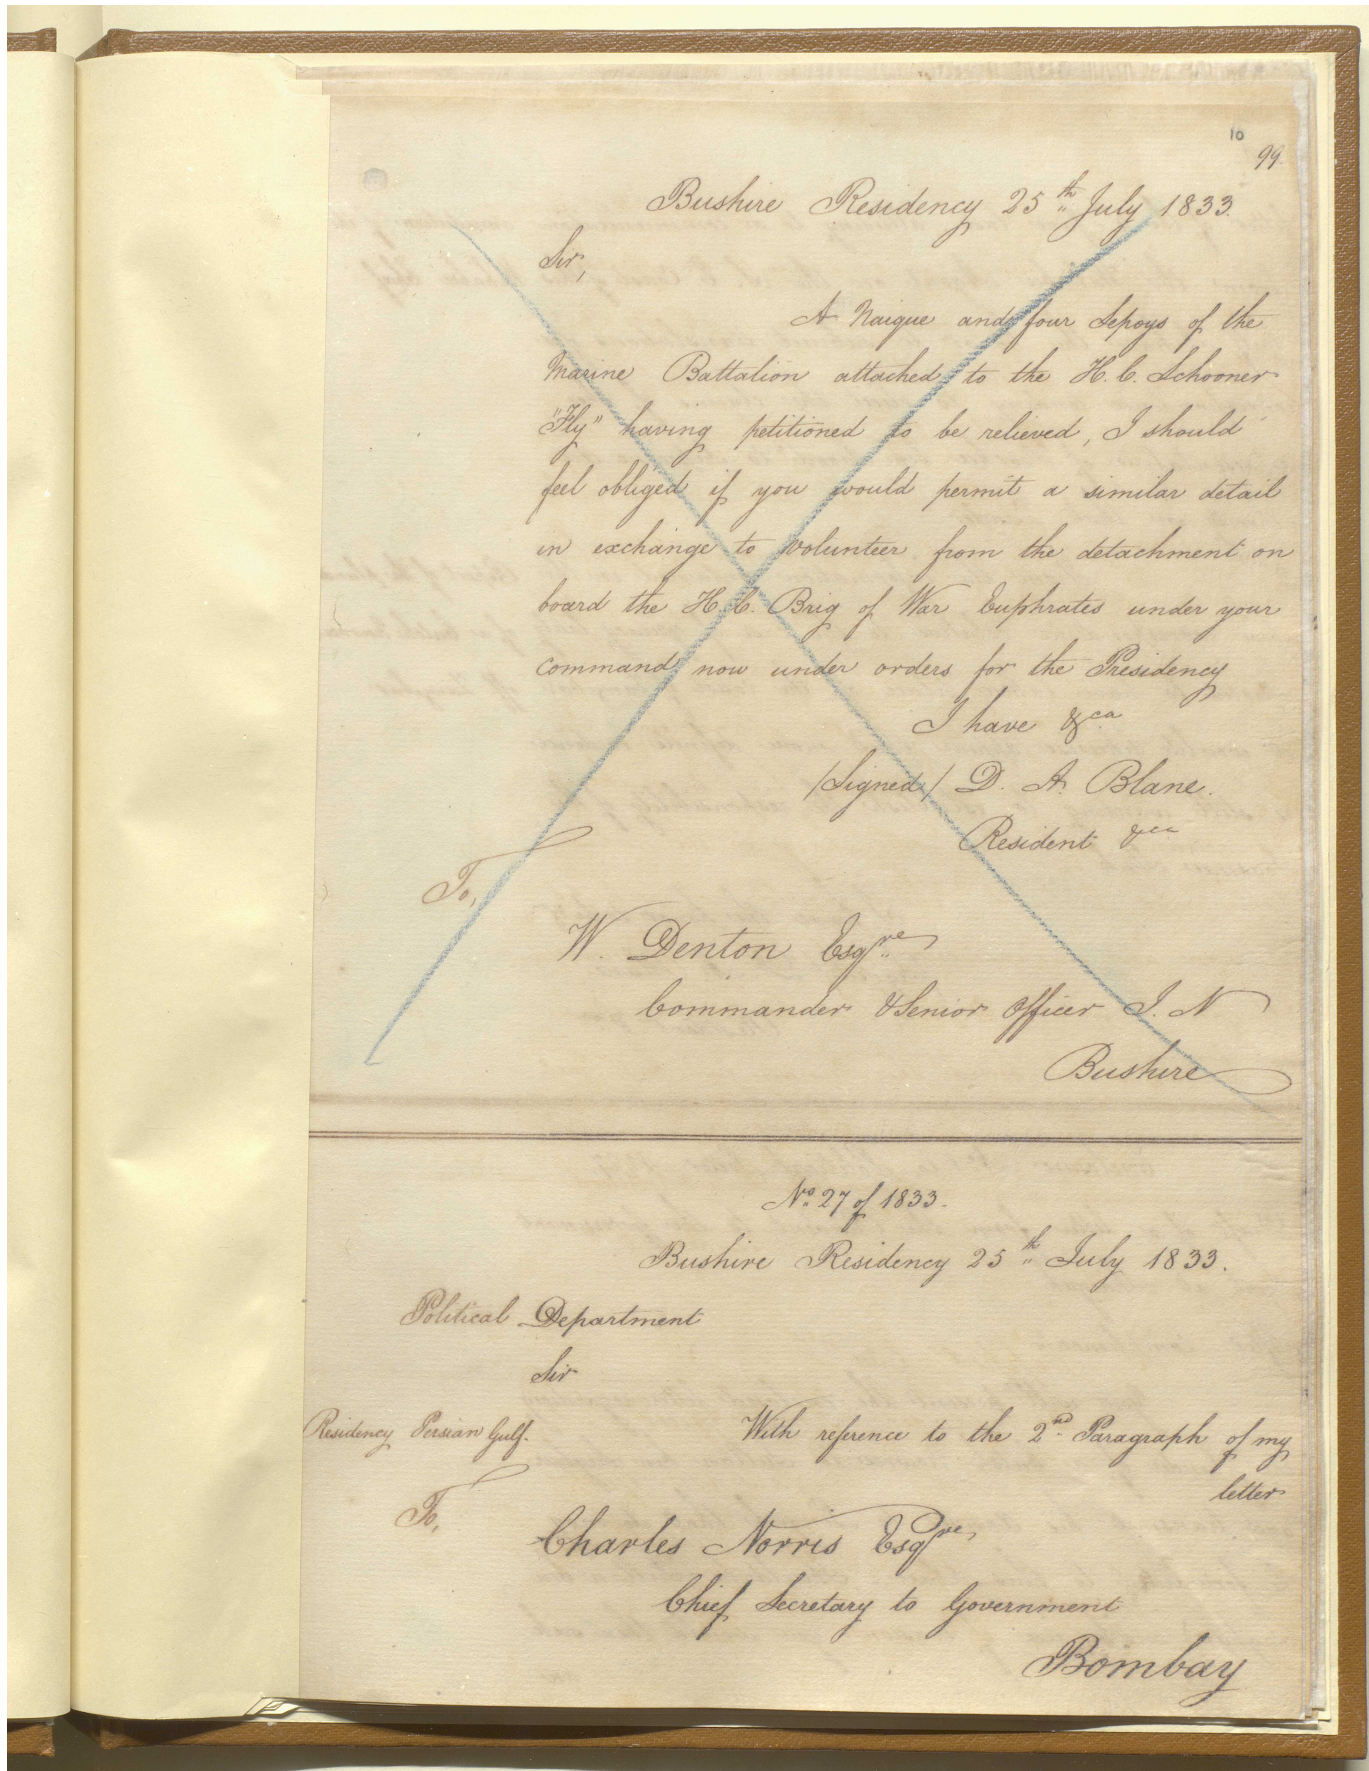 10
99
Bushire Residency 25th July 1833.
Sir,
A Naique and four Sepoys of the
Marine Battalion attached to the H. C. Schooner
"Fly" having petitioned to be relieved, I should
feel obliged if you would permit a similar detail
in exchange to volunteer from the detachment on
board the H. C. Brig of War Euphrates under your
command now under orders for the Presidency
I have &ca
/Signed/ D. A. Blane.
Resident &ca
To,
W. Denton Esqre
Commander & Senior Officer I. N
Bushire
No 27 of 1833.
Bushire Residency 25th July 1833.
Political Department
Sir
Residency Persian Gulf. With reference to the 2nd Paragraph of my
letter
To,
Charles Norris Esqre
Chief Secretary to Government
Bombay